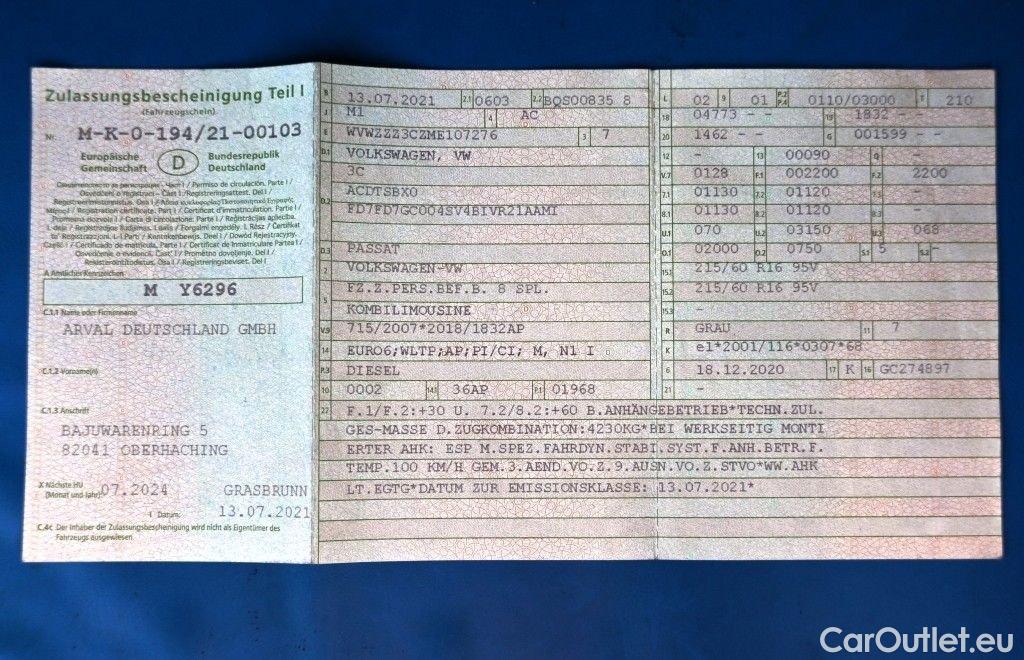 Zulassungsbescheinigung Teil I
(Fahrzeugschein)
Nr. M-K-0-194/21-00103
Europäische Gemeinschaft
D
Bundesrepublik Deutschland
A Amtliches Kennzeichen
M Y6296
C.1.1 Name oder Firmenname
ARVAL DEUTSCHLAND GMBH
C.1.2 Vorname(n)
C.1.3 Anschrift
BAJUWARENRING 5
82041 OBERHACHING
X Nächste HU (Monat und Jahr) 07.2024 GRASBRUNN
I Datum: 13.07.2021
C.4c Der Inhaber der Zulassungsbescheinigung wird nicht als Eigentümer des
Fahrzeugs ausgewiesen.
B 13.07.2021 2.1 0603 2.2 BQS00835 8
J M1 4 AC
E WVWZZZ3CZME107276 3 7
D.1 VOLKSWAGEN, VW
3C
D.2 ACDTSBX0
FD7FD7GC004SV4BIVR21AAMI
D.3 PASSAT
2 VOLKSWAGEN-VW
FZ.Z.PERS.BEF.B. 8 SPL.
5 KOMBILIMOUSINE
V.9 715/2007*2018/1832AP
14 EURO6;WLTP;AP;PI/CI; M, N1 I
P.3 DIESEL
10 0002 14.1 36AP P.1 01968
L 02 9 01 P.2 P.4 0110/03000 T 210
18 04773 - - 19 1832 - -
20 1462 - - G 001599 - -
12 - 13 00090 Q -
V.7 0128 F.1 002200 F.2 2200
7.1 01130 7.2 01120 -
8.1 01130 8.2 01120 -
U.1 070 U.2 03150 U.3 068
O.1 02000 O.2 0750 S.1 5 S.2 -
15.1 215/60 R16 95V
15.2 215/60 R16 95V
15.3 -
R GRAU 11 7
K e1*2001/116*0307*68
6 18.12.2020 17 K 16 GC274897
21 -
22 F.1/F.2:+30 U. 7.2/8.2:+60 B.ANHÄNGEBETRIEB*TECHN.ZUL.
GES-MASSE D.ZUGKOMBINATION:4230KG*BEI WERKSEITIG MONTI
ERTER AHK: ESP M.SPEZ.FAHRDYN.STABI.SYST.F.ANH.BETR.F.
TEMP.100 KM/H GEM.3.AEND.VO.Z.9.AUSN.VO.Z.STVO*WW.AHK
LT.EGTG*DATUM ZUR EMISSIONSKLASSE: 13.07.2021*
CarOutlet.eu